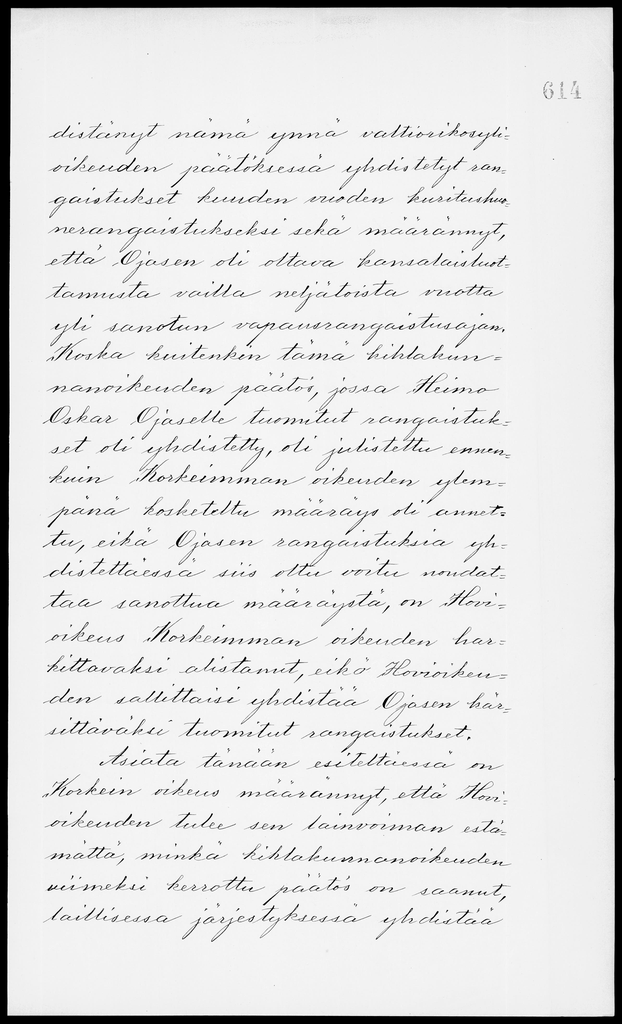 614
distänyt nämä ynnä valtiorikosyli=
oikeuden päätöksessä yhdistetyt ran=
gaistukset kuuden vuoden kuritushuo=
nerangaistukseksi sekä määrännyt,
että Ojasen oli oltava kansalaisluot=
tamusta vailla neljätoista vuotta
yli sanotun vapausrangaistusajan.
Koska kuitenkin tämä kihlakun=
nanoikeuden päätös, jossa Heimo
Oskar Ojaselle tuomitut rangaistuk=
set oli yhdistetty, oli julistettu ennen=
kuin Korkeimman oikeuden ylem=
pänä kosketeltu määräys oli annet=
tu, eikä Ojasen rangaistuksia yh=
distettäessä siis oltu voitu noudat=
taa sanottua määräystä, on Hovi=
oikeus Korkeimman oikeuden har=
kittavaksi alistanut, eikö Hovioikeu=
den sallittaisi yhdistää Ojasen kär=
sittäväksi tuomitut rangaistukset.
Asiata tänään esiteltäessä on
Korkein oikeus määrännyt, että Hovi=
oikeuden tulee sen lainvoiman estä=
mättä, minkä kihlakunnanoikeuden
viimeksi kerrottu päätös on saanut,
laillisessa järjestyksessä yhdistää